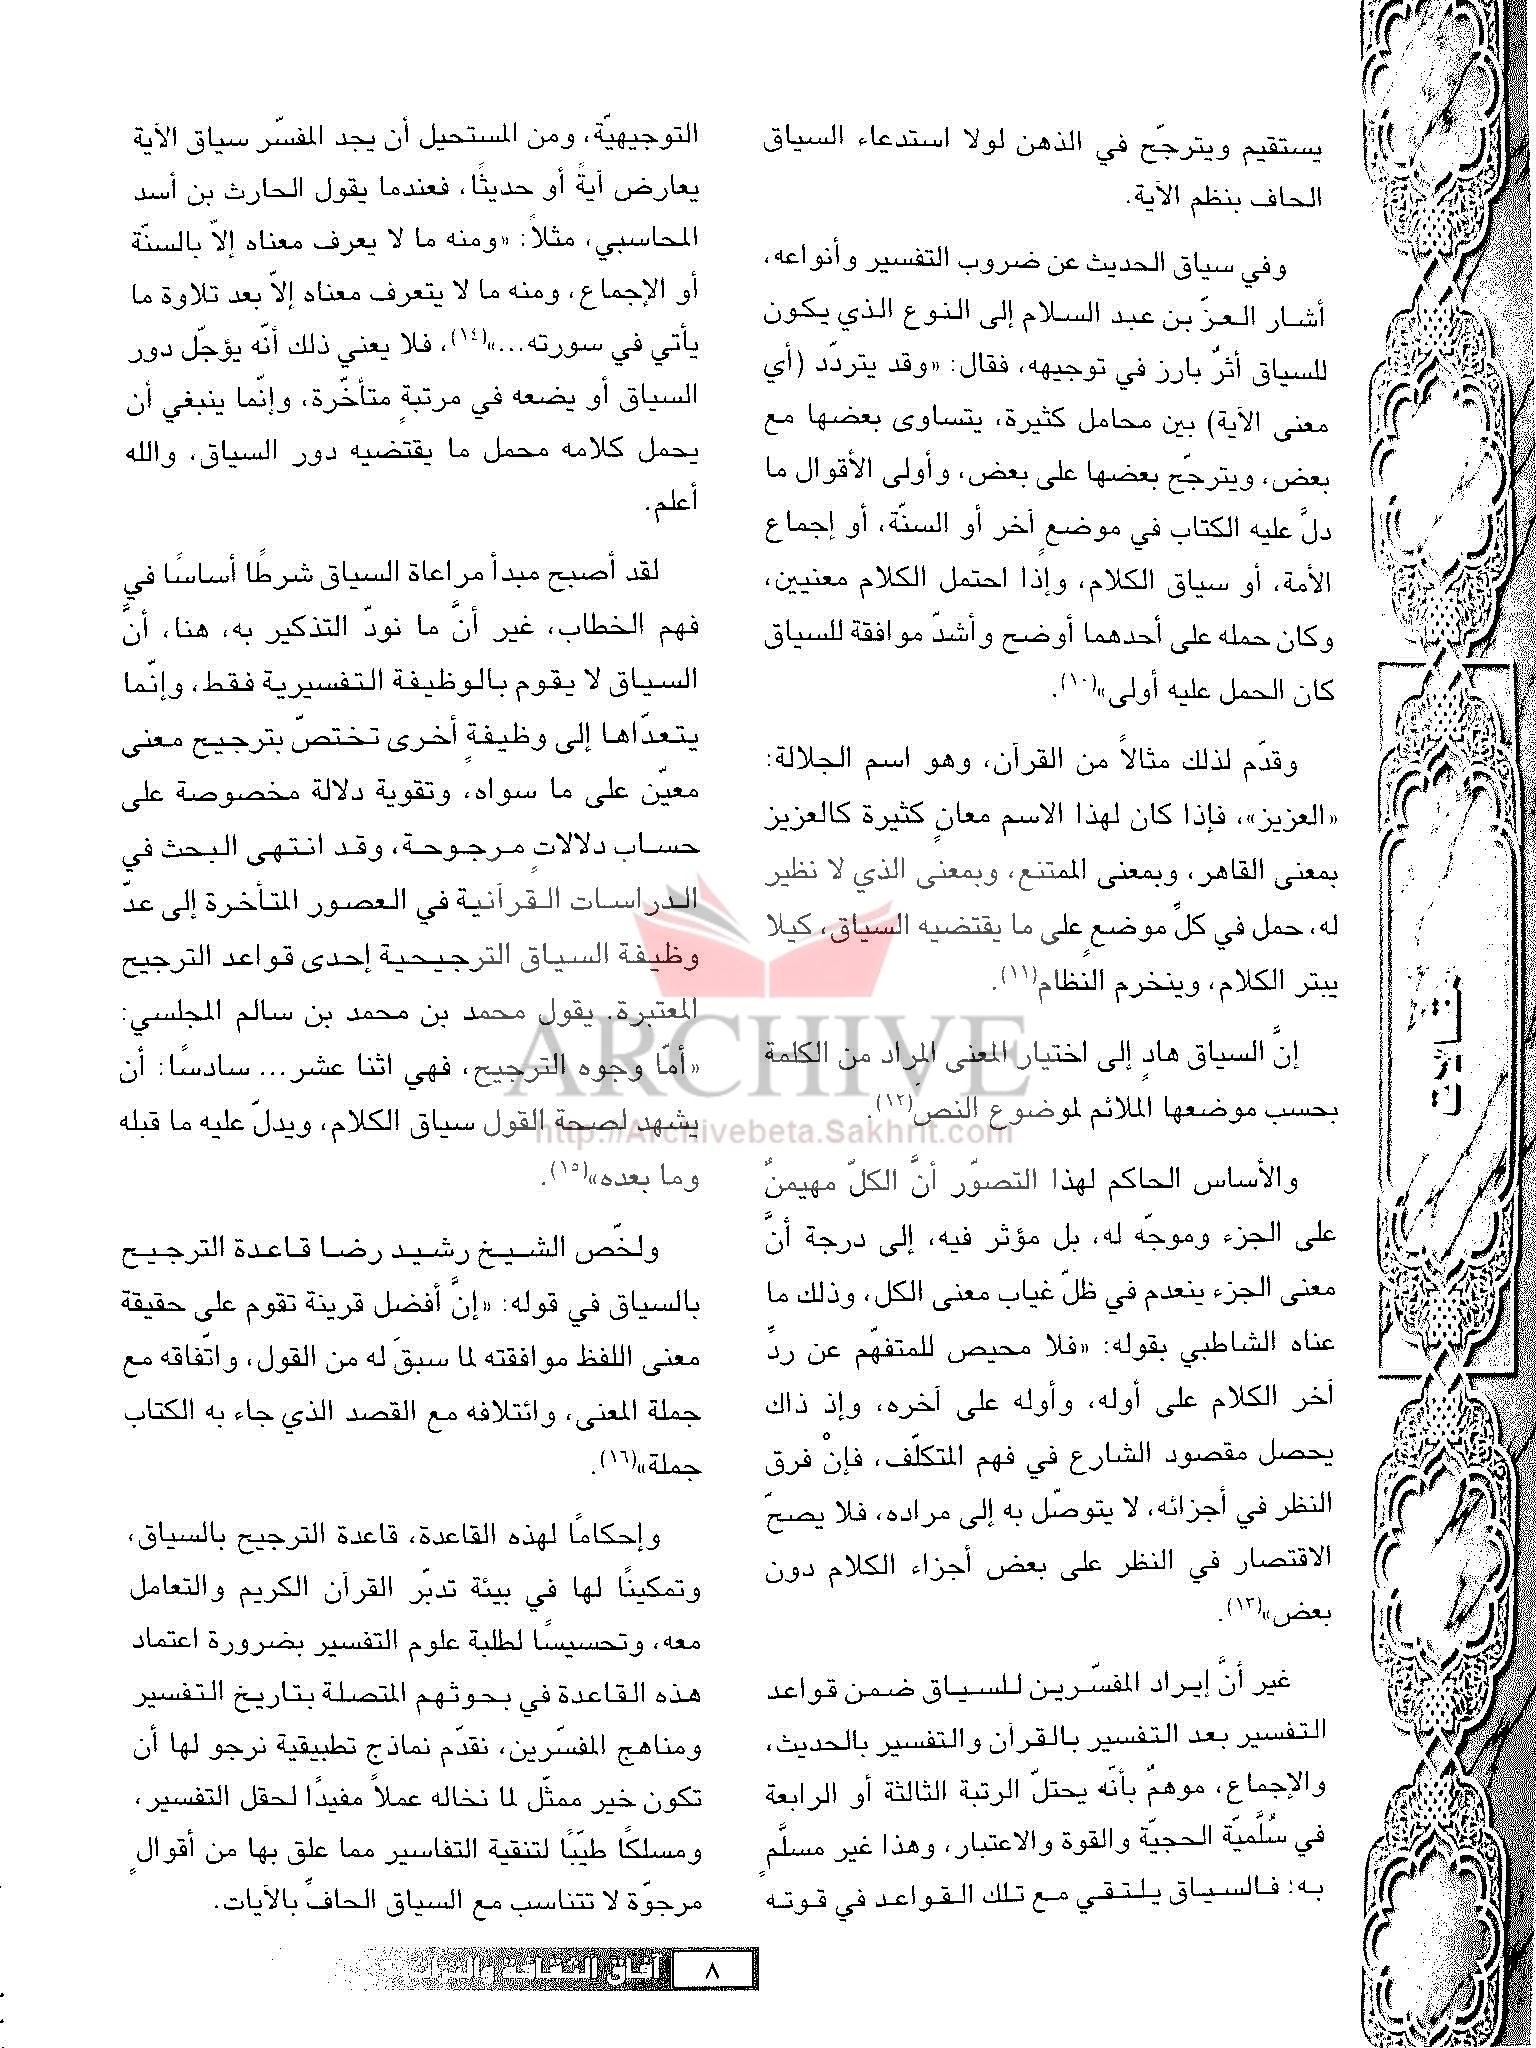 يستقيم ويترجّح في الذهن لولا استدعاء السياق
الحاف بنظم الآية.
وفي سياق الحديث عن ضروب التفسير وأنواعه،
أشار العزّ بن عبد السلام إلى النوع الذي يكون
للسياق أثرٌ بارز في توجيهه، فقال: «وقد يتردّد (أي
معنى الآية) بين محامل كثيرة، يتساوى بعضها مع
بعض، ويترجّح بعضها على بعض، وأولى الأقوال ما
دلَّ عليه الكتاب في موضعٍ آخر أو السنّة، أو إجماع
الأمة، أو سياق الكلام، وإذا احتمل الكلام معنيين،
وكان حمله على أحدهما أوضح وأشدّ موافقة للسياق
كان الحمل عليه أولى»(١٠).
وقدّم لذلك مثالاً من القرآن، وهو اسم الجلالة:
«العزيز»، فإذا كان لهذا الاسم معانٍ كثيرة كالعزيز
بمعنى القاهر، وبمعنى الممتنع، وبمعنى الذي لا نظير
له، حمل في كلّ موضعٍ على ما يقتضيه السياق، كيلا
يبتر الكلام، وينخرم النظام(١١).
إنَّ السياق هادٍ إلى اختيار المعنى المراد من الكلمة
بحسب موضعها الملائم لموضوع النص(١٢).
والأساس الحاكم لهذا التصوّر أنَّ الكلّ مهيمنٌ
على الجزء وموجّه له، بل مؤثر فيه، إلى درجة أنَّ
معنى الجزء ينعدم في ظلّ غياب معنى الكل، وذلك ما
عناه الشاطبي بقوله: «فلا محيص للمتفهّم عن ردِّ
آخر الكلام على أوله، وأوله على آخره، وإذ ذاك
يحصل مقصود الشارع في فهم المتكلّف، فإنْ فرق
النظر في أجزائه، لا يتوصّل به إلى مراده، فلا يصحّ
الاقتصار في النظر على بعض أجزاء الكلام دون
بعض»(١٣).
غير أنَّ إيراد المفسّرين للسياق ضمن قواعد
التفسير بعد التفسير بالقرآن والتفسير بالحديث،
والإجماع، موهمٌ بأنّه يحتلّ الرتبة الثالثة أو الرابعة
في سُلَّميّة الحجيّة والقوة والاعتبار، وهذا غير مسلَّمٍ
به: فالسياق يلتقي مع تلك القواعد في قوته
التوجيهيّة، ومن المستحيل أن يجد المفسّر سياق الآية
يعارض آيةً أو حديثًا، فعندما يقول الحارث بن أسد
المحاسبي، مثلاً: «ومنه ما لا يعرف معناه إلاّ بالسنّة
أو الإجماع، ومنه ما لا يتعرف معناه إلاّ بعد تلاوة ما
يأتي في سورته...»(١٤)، فلا يعني ذلك أنّه يؤجّل دور
السياق أو يضعه في مرتبةٍ متأخّرة، وإنّما ينبغي أن
يحمل كلامه محمل ما يقتضيه دور السياق، والله
أعلم.
لقد أصبح مبدأ مراعاة السياق شرطًا أساسًا في
فهم الخطاب، غير أنَّ ما نودّ التذكير به، هنا، أنَّ
السياق لا يقوم بالوظيفة التفسيرية فقط، وإنّما
يتعدّاها إلى وظيفةٍ أخرى تختصّ بترجيح معنى
معيّن على ما سواه، وتقوية دلالة مخصوصة على
حساب دلالاتٍ مرجوحة، وقد انتهى البحث في
الدراسات القرآنية في العصور المتأخرة إلى عدّ
وظيفة السياق الترجيحية إحدى قواعد الترجيح
المعتبرة. يقول محمد بن محمد بن سالم المجلسي:
«أمّا وجوه الترجيح، فهي اثنا عشر... سادسًا: أن
يشهد لصحة القول سياق الكلام، ويدلّ عليه ما قبله
وما بعده»(١٥).
ولخّص الشيخ رشيد رضا قاعدة الترجيح
بالسياق في قوله: «إنَّ أفضل قرينة تقوم على حقيقة
معنى اللفظ موافقته لما سبقَ له من القول، واتّفاقه مع
جملة المعنى، وائتلافه مع القصد الذي جاء به الكتاب
جملة»(١٦).
وإحكامًا لهذه القاعدة، قاعدة الترجيح بالسياق،
وتمكينًا لها في بيئة تدبّر القرآن الكريم والتعامل
معه، وتحسيسًا لطلبة علوم التفسير بضرورة اعتماد
هذه القاعدة في بحوثهم المتصلة بتاريخ التفسير
ومناهج المفسّرين، نقدّم نماذج تطبيقية نرجو لها أن
تكون خير ممثّل لما نخاله عملاً مفيدًا لحقل التفسير،
ومسلكًا طيّبًا لتنقية التفاسير مما علق بها من أقوالٍ
مرجوّة لا تتناسب مع السياق الحافّ بالآيات.
مقالات
ARCHIVE
http://Archivebeta.Sakhrit.com
٨
آفاق الثقافة والتراث